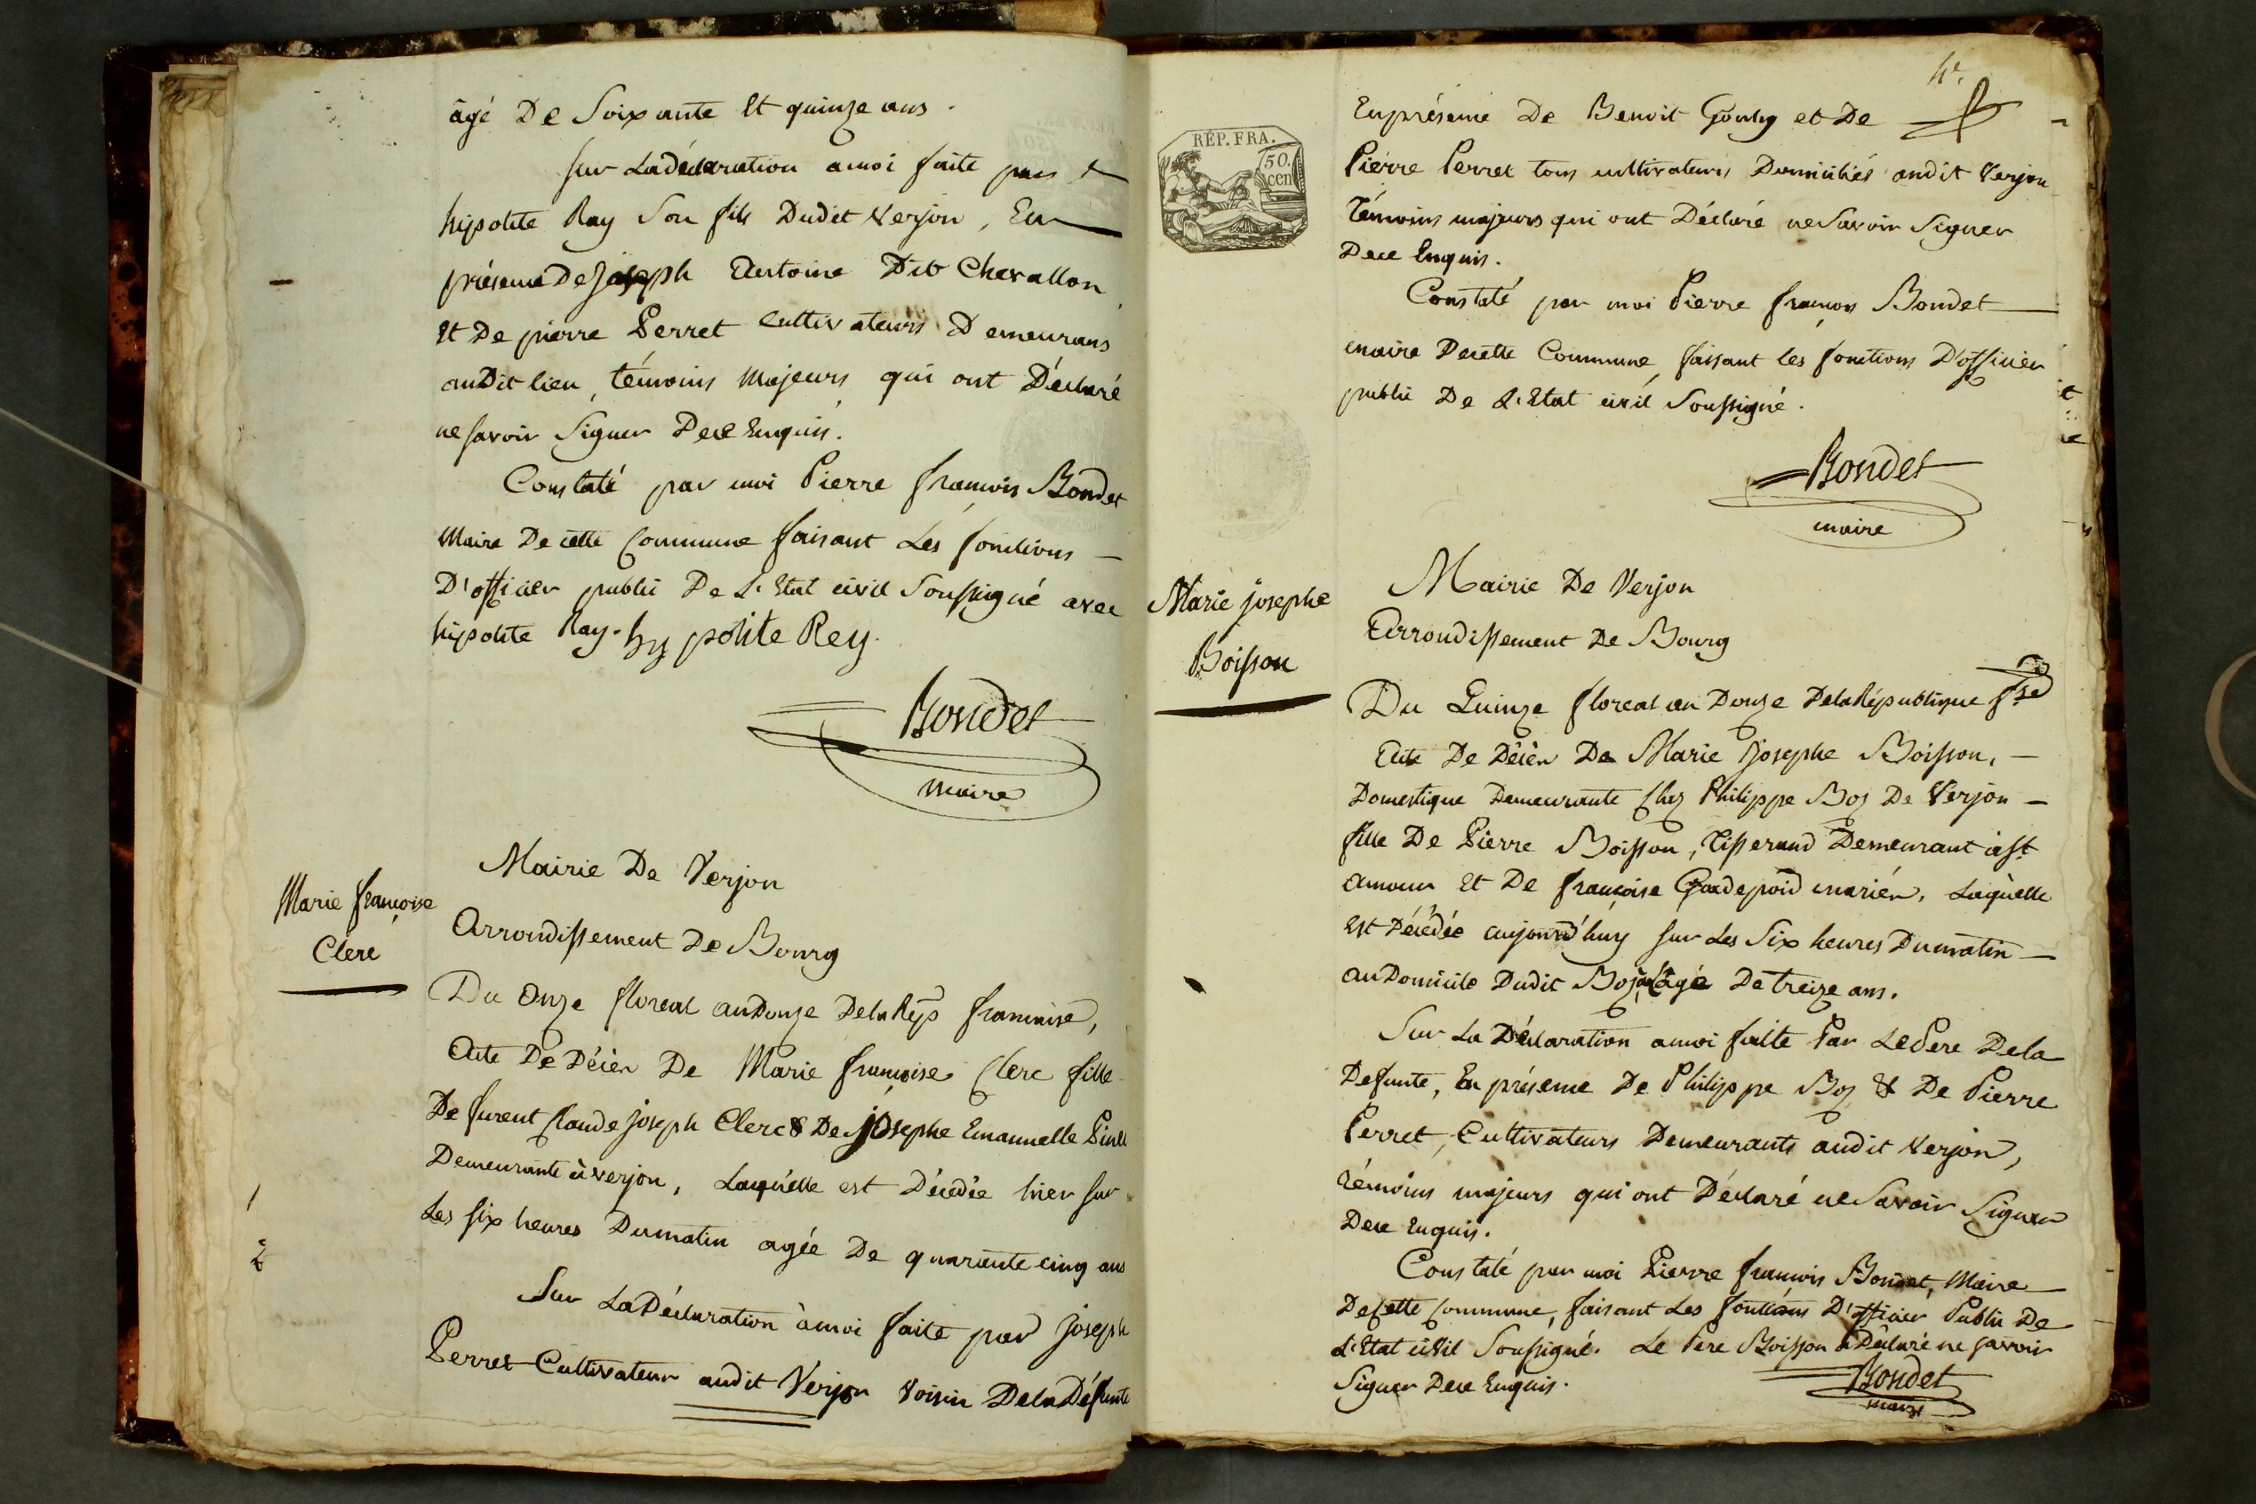 âgé De Soixante Et quinze ans.
Sur Ladéclaration amoi faite par
hipolite Ray Son fils Dudit Verjon, En
présence De Joseph Antoine Dit Chevallon
Et De pierre Perret Cultivateurs Demeurans
auDit lieu, témoins Majeurs qui ont Déclaré
ne savoir Signer Dece Enquis.
Constaté par moi Pierre francois Bondet
Maire De cette Commune faisant Les fonctions
D'officier public De L'Etat civil Soussigné avec
hipolite Ray. hypolite Rey.
Bondet
maire
Marie francoise
Clerc
Mairie De Verjon
Arrondissement De Bourg
Du Onze floreal anDouze DelaRép francaise,
Acte De Décès De Marie francoise Clerc fille
De furent Claude joseph Clerc & De josephe Emanuelle
Demeurante à verjon, Laquelle est Décédée hier sur
Les six heures Dumatin agée De quarante cinq ans
Sur La Déclaration à moi faite par Joseph
Perret Cultivateur audit Verjon voisin Dela Défunte
1
2
4e.
RÉP. FRA.
50.
cen
En présence De Benoit Gouly et De
Pierre Perret tous cultivateurs Domiciliés audit Verjon
témoins majeurs qui ont Déclaré ne Savoir Signer
Dece Enquis.
Constaté par moi Pierre francois Bondet
maire Decette Commune, faisant les fonctions D'officier
public De L'Etat civil Soussigné.
Bondet
maire
Marie josephe
Boisson
Mairie De Verjon
Arrondissement De Bourg
Du Quinze floreal an Douze DelaRépublique fse
Acte De Décès De Marie josephe Boisson,
Domestique Demeurante Chez Philippe Boz De Verjon
fille De Pierre Boisson, Tisserand Demeurant à St
amour Et De francoise Gardepoid mariés, Laquelle
Est Décédée aujourd'huy sur Les Six heures Dumatin
au Domicile Dudit Boz, âgée De treize ans.
Sur La Déclaration amoi faite Par Le Pere Dela
Defunte, En présence De Philippe Boz & De Pierre
Perret, Cultivateurs Demeurants audit Verjon,
témoins majeurs qui ont Déclaré ne Savoir Signer
Dece Enquis.
Constaté par moi Pierre francois Bondet, Maire
De Cette Commune, faisant Les fonctions D'officier Public De
L'Etat civil Soussigné. Le Pere Boisson a Déclaré ne savoir
Signer Dece Enquis.
Bondet
maire